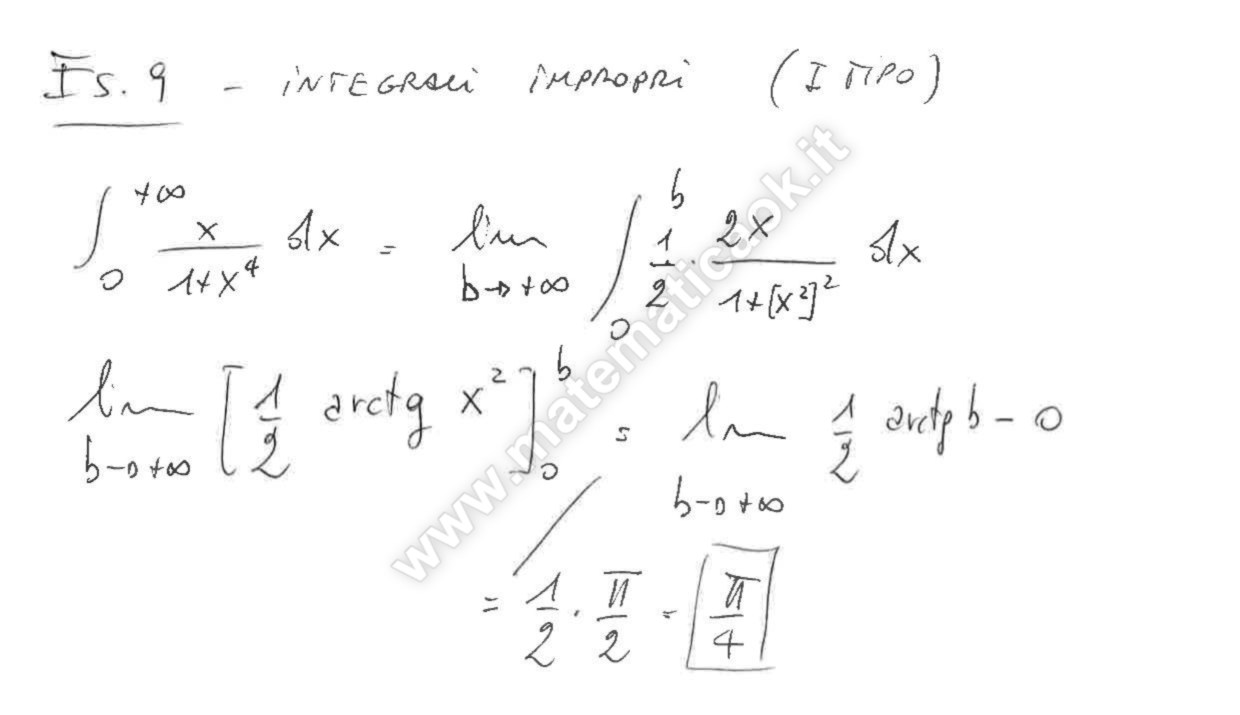 Es. 9 - INTEGRALI IMPROPRI (I TIPO)
∫₀^{+∞} x/(1+x⁴) dx = lim_{b→+∞} ∫₀^b 1/2 · 2x/(1+[x²]²) dx
lim_{b→+∞} [1/2 arctg x²]₀^b = lim_{b→+∞} 1/2 arctg b - 0
= 1/2 · π/2 = π/4
www.matematicaok.it